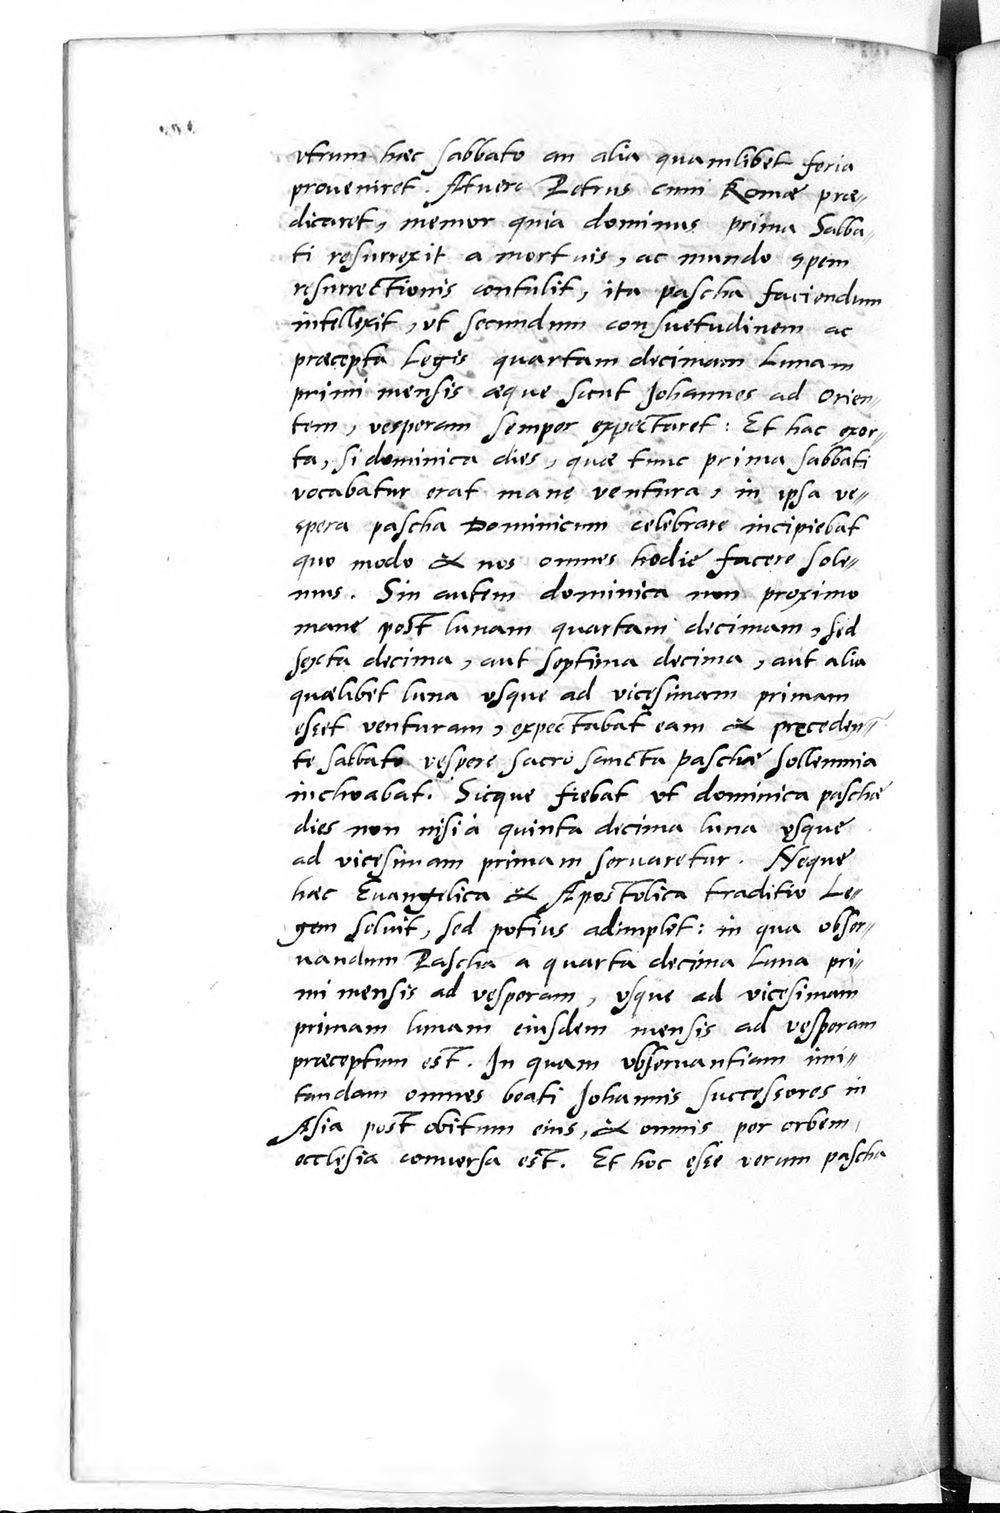 vtrum hæc sabbato an alia quamlibet feria
proveniret. At vero Petrus cum Romæ præ=
dicaret, memor quia dominus prima Sabba=
ti resurrexit a mortuis, ac mundo spem
resurrectionis contulit, ita pascha faciendum
intellexit, vt secundum consuetudinem ac
præcepta Legis quartam decimam Lunam
primi mensis æque sicut Johannes ad Orien=
tem, vesperam semper expectaret: Et hac exor=
ta, si dominica dies, quæ tunc prima sabbati
vocabatur erat mane ventura, in ipsa ve=
spera pascha Dominicum celebrare incipiebat
quo modo & nos omnes hodie facere sole=
mus. Sin autem dominica non proximo
mane post lunam quartam decimam, sed
sexta decima, aut septima decima, aut alia
quælibet luna vsque ad vicesimam primam
esset venturam, expectabat eam & præceden=
te sabbato vespere sacro sancta paschæ sollemnia
inchoabat. Sicque fiebat vt dominica paschæ
dies non nisi à quinta decima luna vsque
ad vicesimam primam servaretur. Neque
hæc Evangelica & Apostolica traditio Le=
gem solvit, sed potius adimplet: in qua obser=
uandum Pascha a quarta decima Luna pri=
mi mensis ad vesperam, vsque ad vicesimam
primam lunam eiusdem mensis ad vesperam
præceptum est. In quam observantiam imi=
tandam omnes beati Johannis successores in
Asia post obitum eius, & omnis per orbem
ecclesia conversa est. Et hoc esse verum pascha